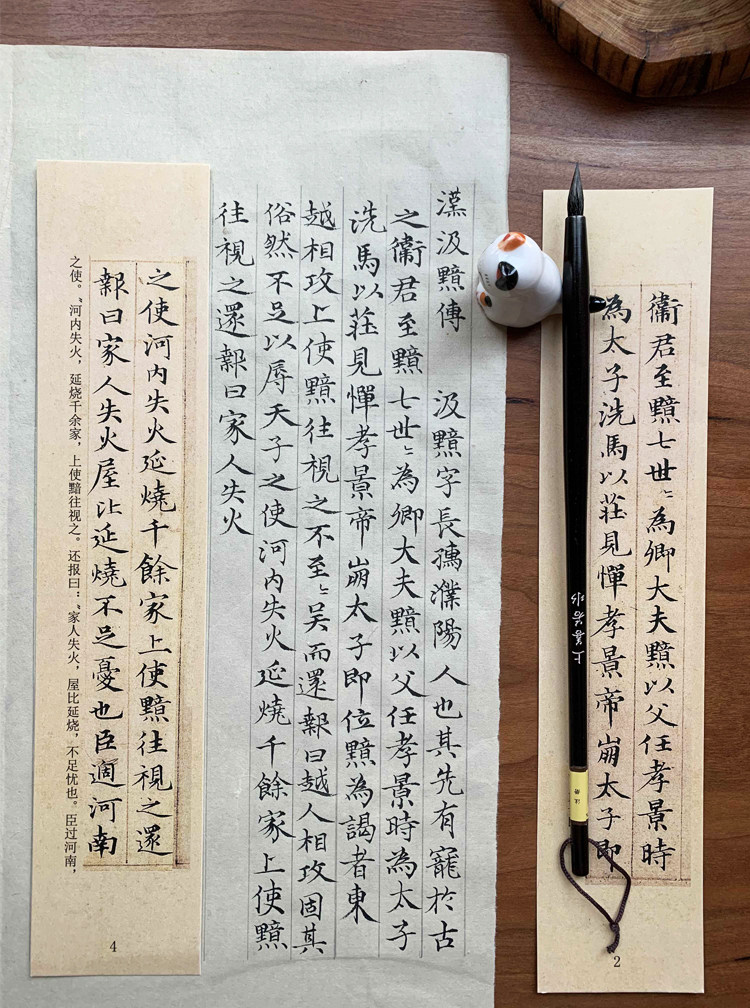 衞君至黯七世〻為卿大夫黯以父任孝景時
為太子洗馬以莊見憚孝景帝崩太子即
2
上善若水
漢汲黯傳 汲黯字長孺濮陽人也其先有寵於古
之衞君至黯七世〻為卿大夫黯以父任孝景時為太子
洗馬以莊見憚孝景帝崩太子即位黯為謁者東
越相攻上使黯往視之不至〻吴而還報曰越人相攻固其
俗然不足以辱天子之使河内失火延燒千餘家上使黯
往視之還報曰家人失火
之使河内失火延燒千餘家上使黯往視之還
報曰家人失火屋比延燒不足憂也臣過河南
之使。“河内失火，延烧千余家，上使黯往视之。还报曰：“家人失火，屋比延烧，不足忧也。臣过河南，
4